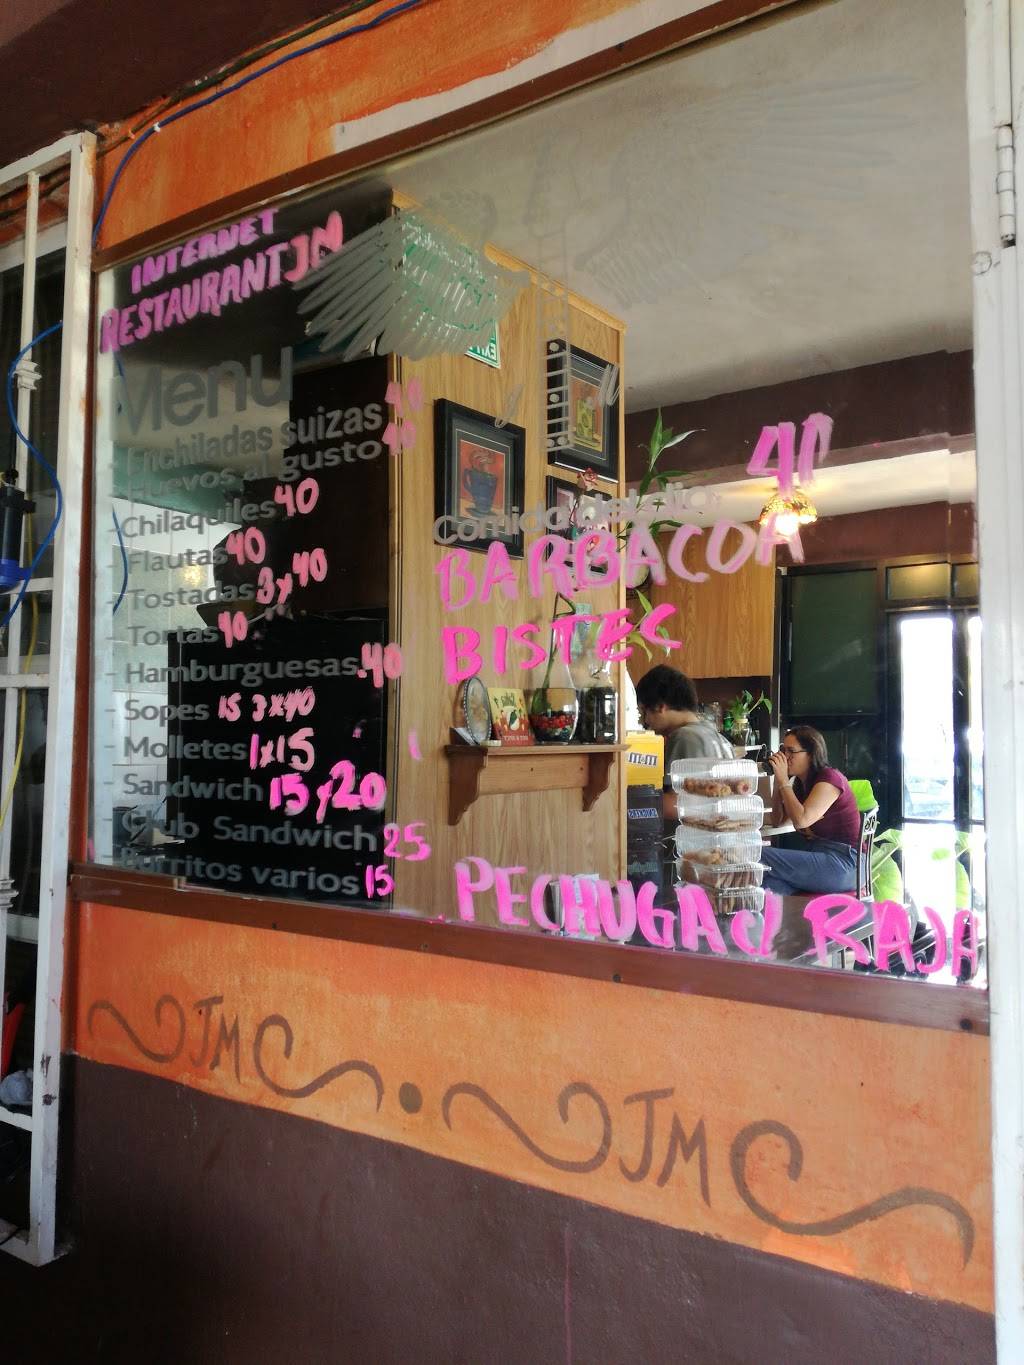 INTERNET
RESTAURANT JM
Menu
- Enchiladas suizas 40
- Huevos al gusto 40
- Chilaquiles 40
- Flautas 40
- Tostadas 3x40
- Tortas 40
- Hamburguesas. 40
- Sopes 15 3x40
- Molletes 1x15
- Sandwich 15 y 20
- Club Sandwich 25
- Burritos varios 15
Comida del dia 40
BARBACOA
BISTEC
PECHUGA d RAJA
JM
JM